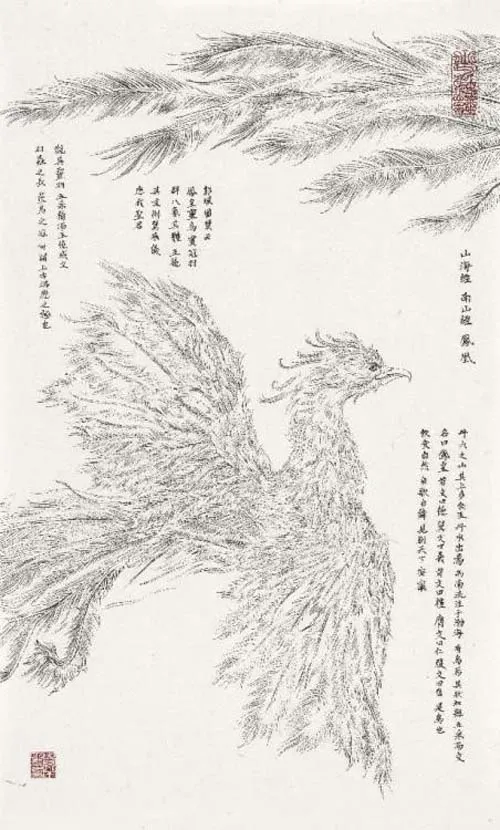 山海經 南山經 鳳凰
丹穴之山其上多金玉丹水出焉而南流注于渤海有鳥焉其狀如雞五采而文
名曰鳳皇首文曰德翼文曰義背文曰禮膺文曰仁腹文曰信是鳥也
飲食自然自歌自舞見則天下安寧
郭璞圖贊云
鳳皇靈鳥實冠羽
群八象其體五德
其文附翼來儀
應我聖君
其靈羽五采五德成文
之長鳥之上古瑞應之也